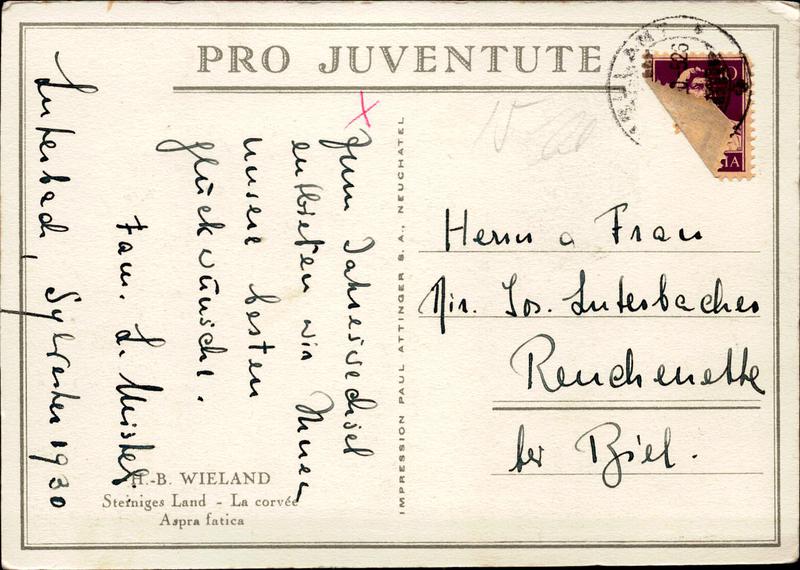 PRO JUVENTUTE
Luterbach, Sylvester 1930
Zum Jahreswechsel
entbieten wir Ihnen
unsere besten
Glückwünsche.
Fam. L. Mistel.
H.-B. WIELAND
Steiniges Land - La corvée
Aspra fatica
IMPRESSION PAUL ATTINGER S. A., NEUCHATEL
Herrn & Frau
Dir. Jos. Luterbacher
Reuchenette
bei Biel.